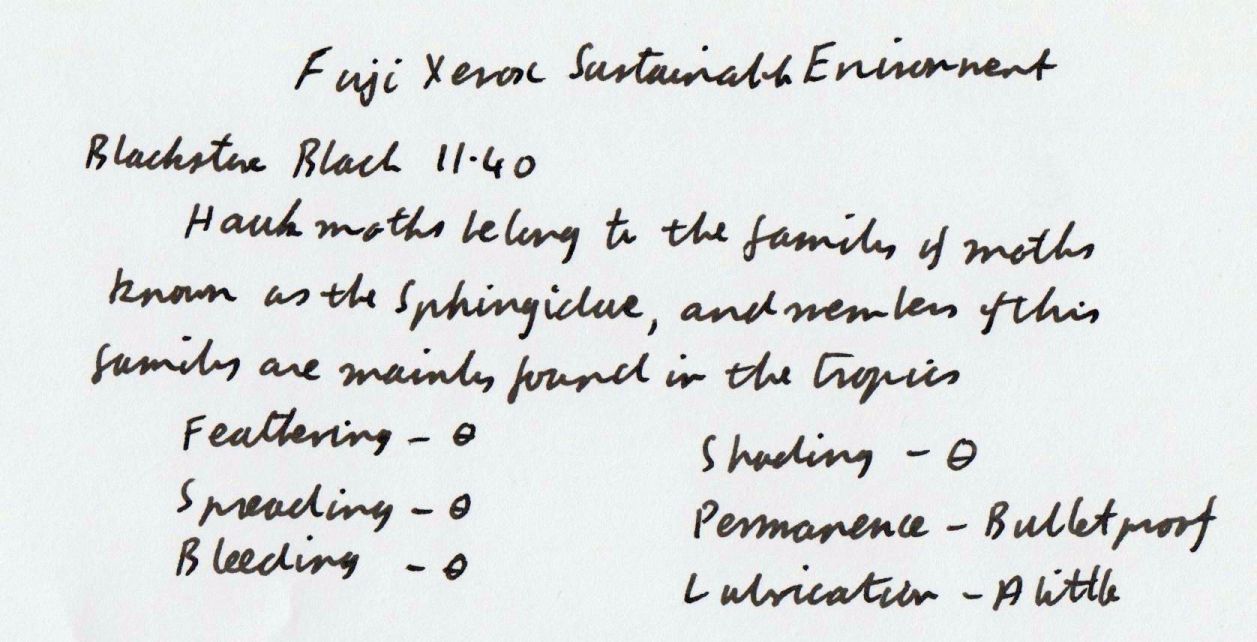 Fuji Xerox Sustainable Enironment
Blackstone Black 11.40
Hawk moths belong to the family of moths
known as the Sphingidae, and members of this
family are mainly found in the tropics
Feathering - 0
Shading - 0
Spreading - 0
Permanence - Bulletproof
Bleeding - 0
Lubrication - A little